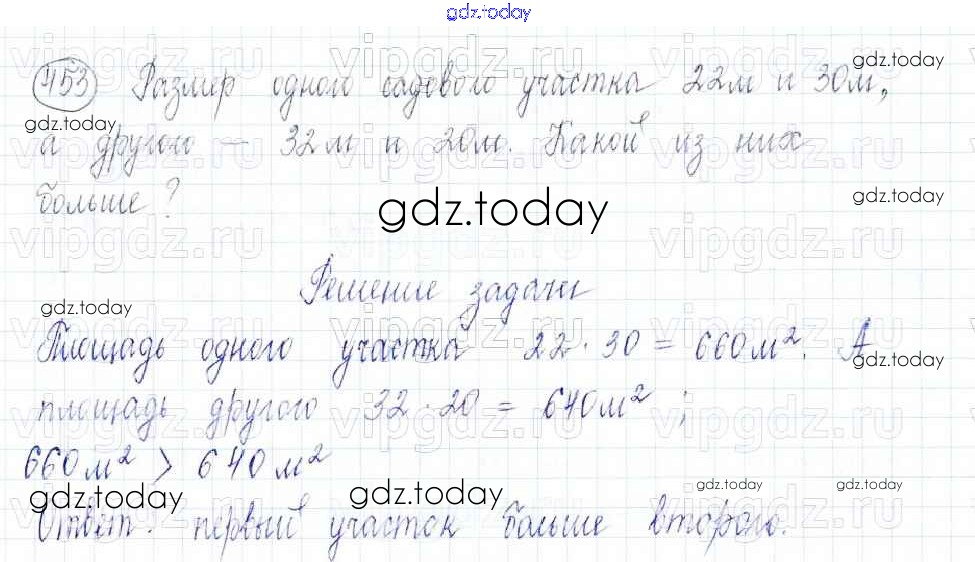 gdz.today
453 Размер одного садового участка 22м и 30м,
а другого – 32м и 20м. Какой из них
больше?
gdz.today
Решение задачи
Площадь одного участка 22·30 = 660м². А
площадь другого 32·20 = 640м²;
660м² > 640м²
gdz.today gdz.today gdz.today gdz.today
Ответ: первый участок больше второго.